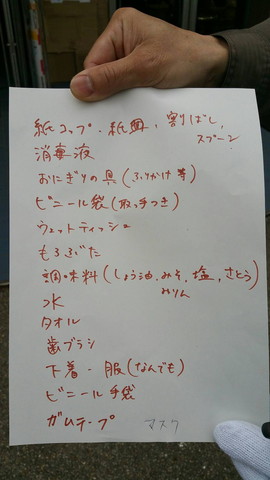 紙コップ・紙皿、割りばし、
スプーン
消毒液
おにぎりの具(ふりかけ等)
ビニール袋(取っ手つき)
ウェットティッシュ
もろぶた
調味料(しょう油、みそ、塩、さとう)
みりん
水
タオル
歯ブラシ
下着・服(なんでも)
ビニール手袋
ガムテープ マスク